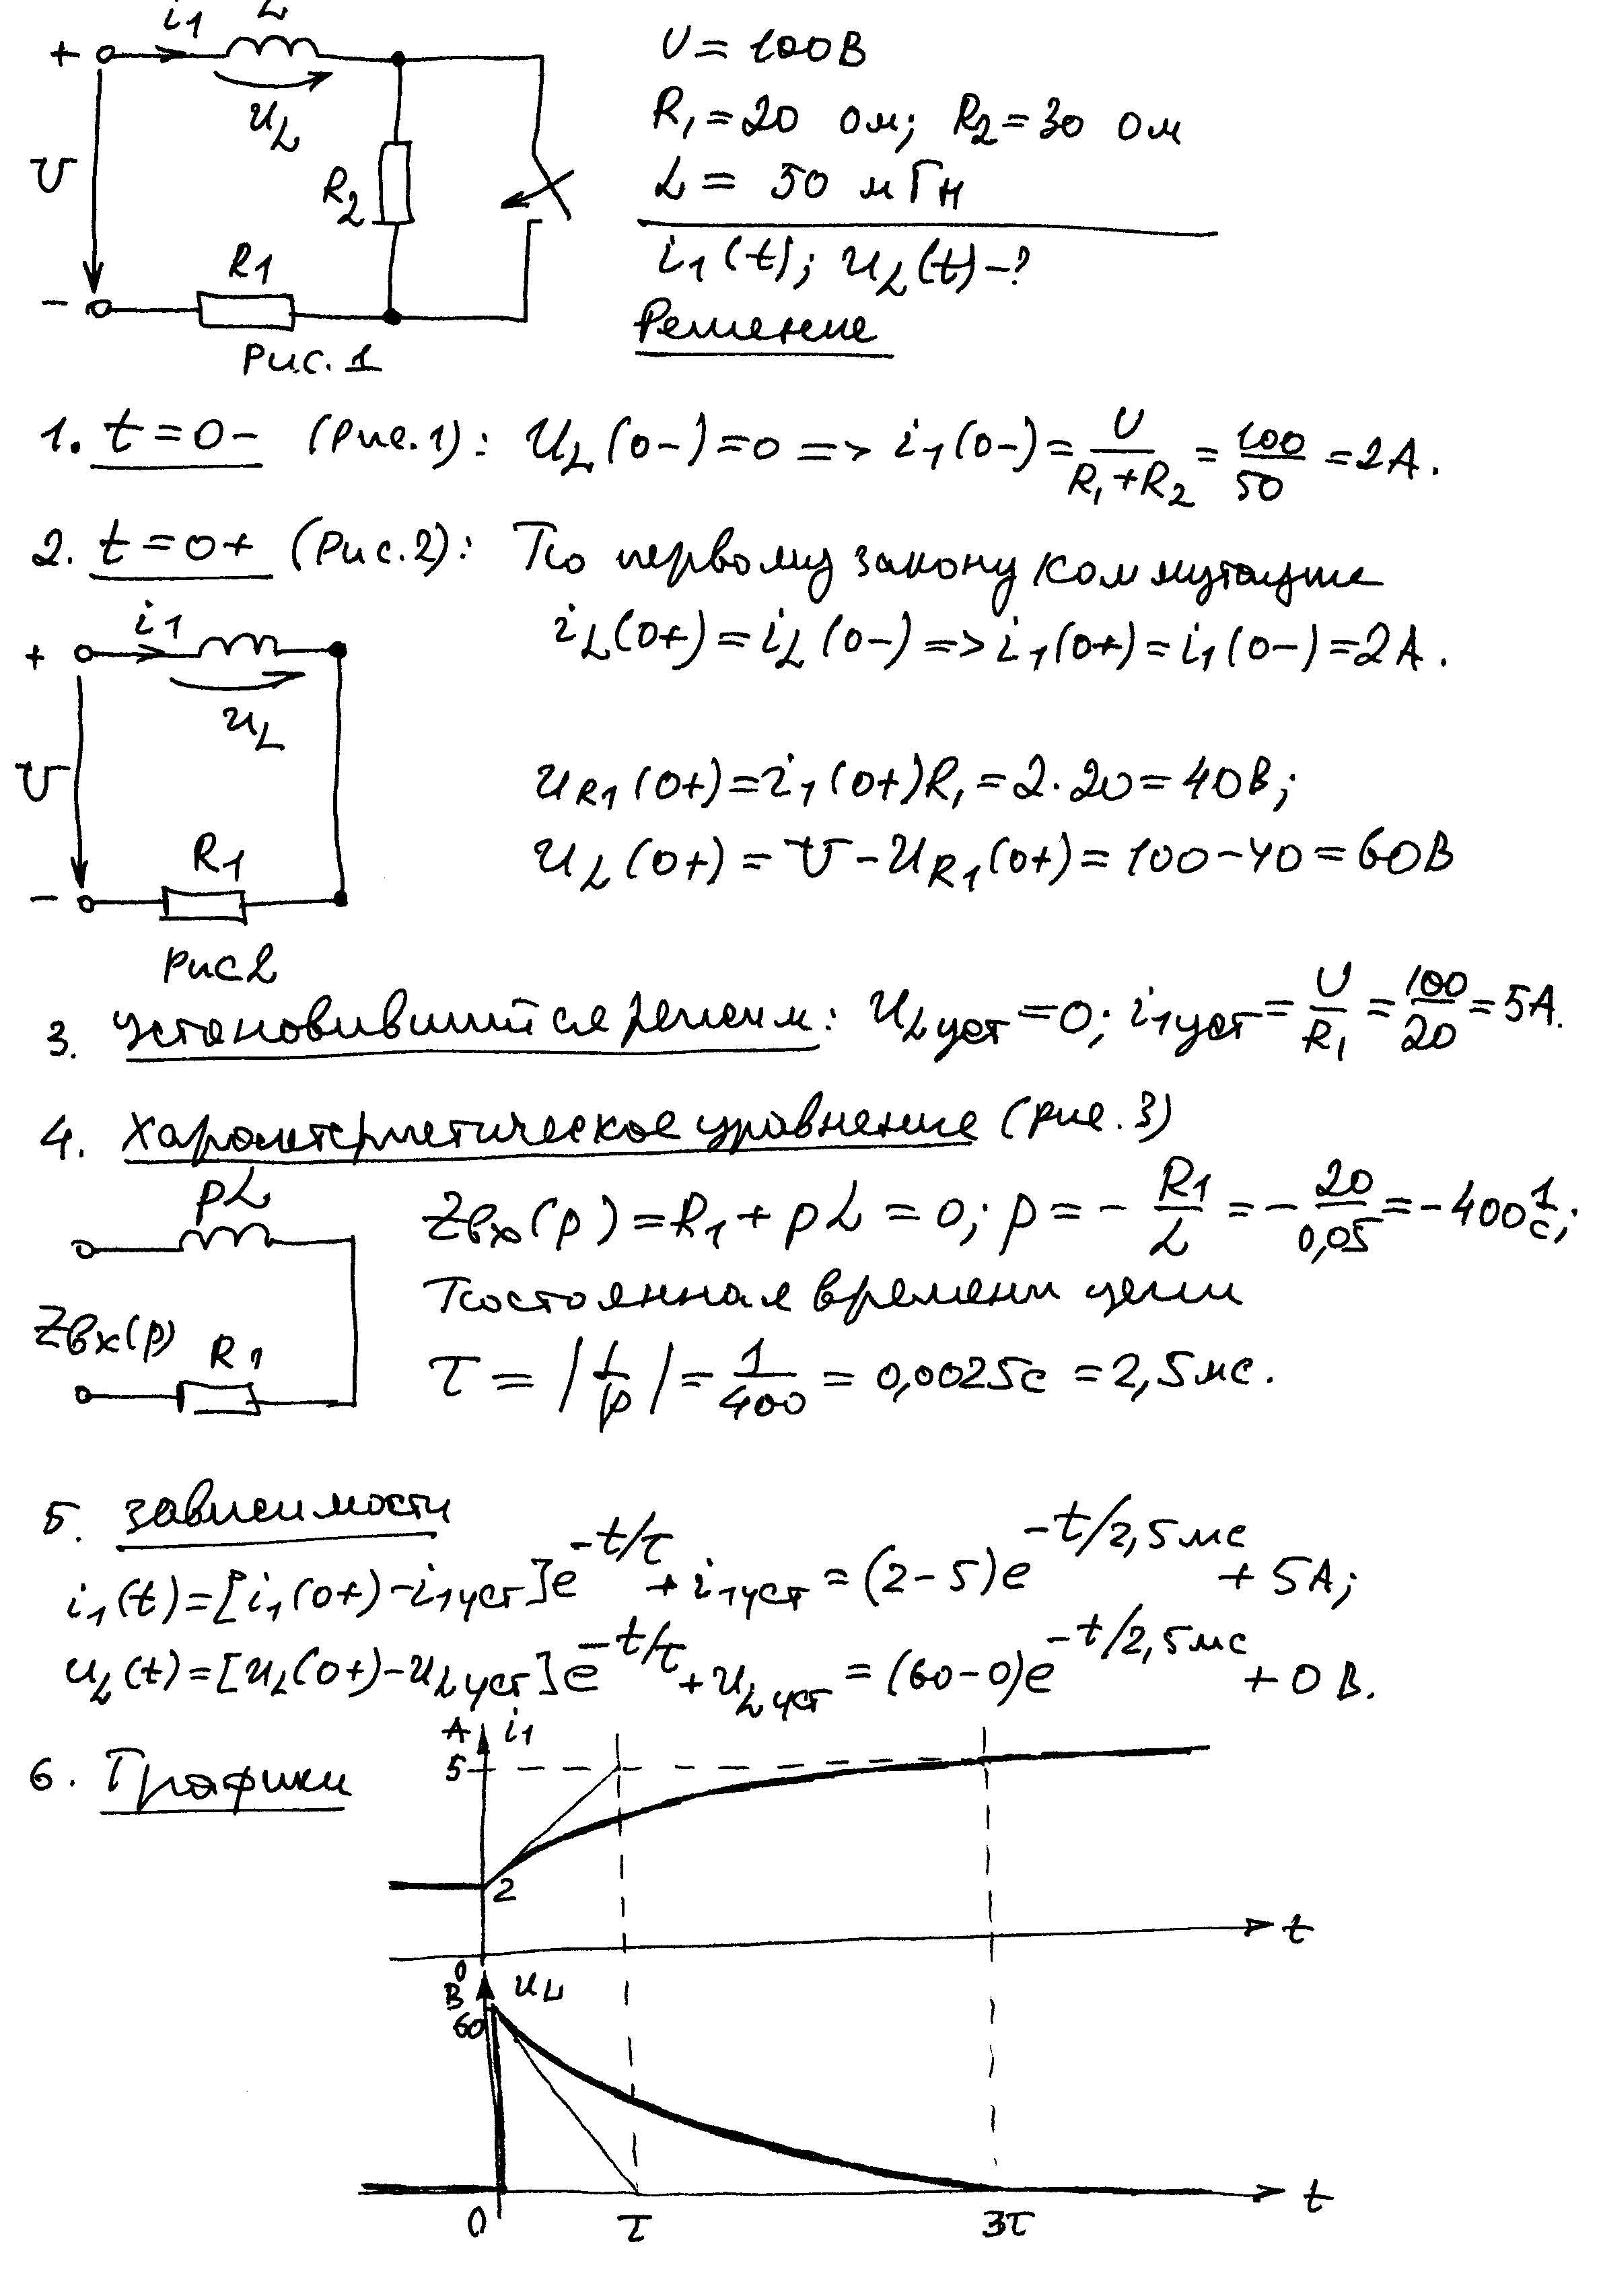 i1 L
+
U = 100В
uL
R1 = 20 Ом; R2 = 30 Ом
U
R2
L = 50 мГн
R1
i1(t); uL(t) - ?
-
Решение
Рис. 1
1. t = 0- (Рис. 1): UL(0-) = 0 => i1(0-) = U/(R1+R2) = 100/50 = 2А.
2. t = 0+ (Рис. 2): По первому закону коммутации
i1
iL(0+) = iL(0-) => i1(0+) = i1(0-) = 2А.
+
uL
U
uR1(0+) = i1(0+)R1 = 2·20 = 40В;
R1
uL(0+) = U - uR1(0+) = 100 - 40 = 60В
-
Рис 2
3. Установившийся режим: uLуст = 0; i1уст = U/R1 = 100/20 = 5А.
4. Характеристическое уравнение (рис. 3)
pL
Zвх(p) = R1 + pL = 0; p = - R1/L = - 20/0,05 = - 400 1/с;
Постоянная времени цепи
Zвх(p)
R1
τ = |1/p| = 1/400 = 0,0025с = 2,5мс.
5. Зависимости
i1(t) = [i1(0+) - i1уст]e^-t/τ + i1уст = (2-5)e^-t/2,5мс + 5А;
uL(t) = [uL(0+) - uLуст]e^-t/τ + uLуст = (60-0)e^-t/2,5мс + 0 В.
6. Графики
А i1
5
2
t
0
В uL
60
t
0 τ 3τ